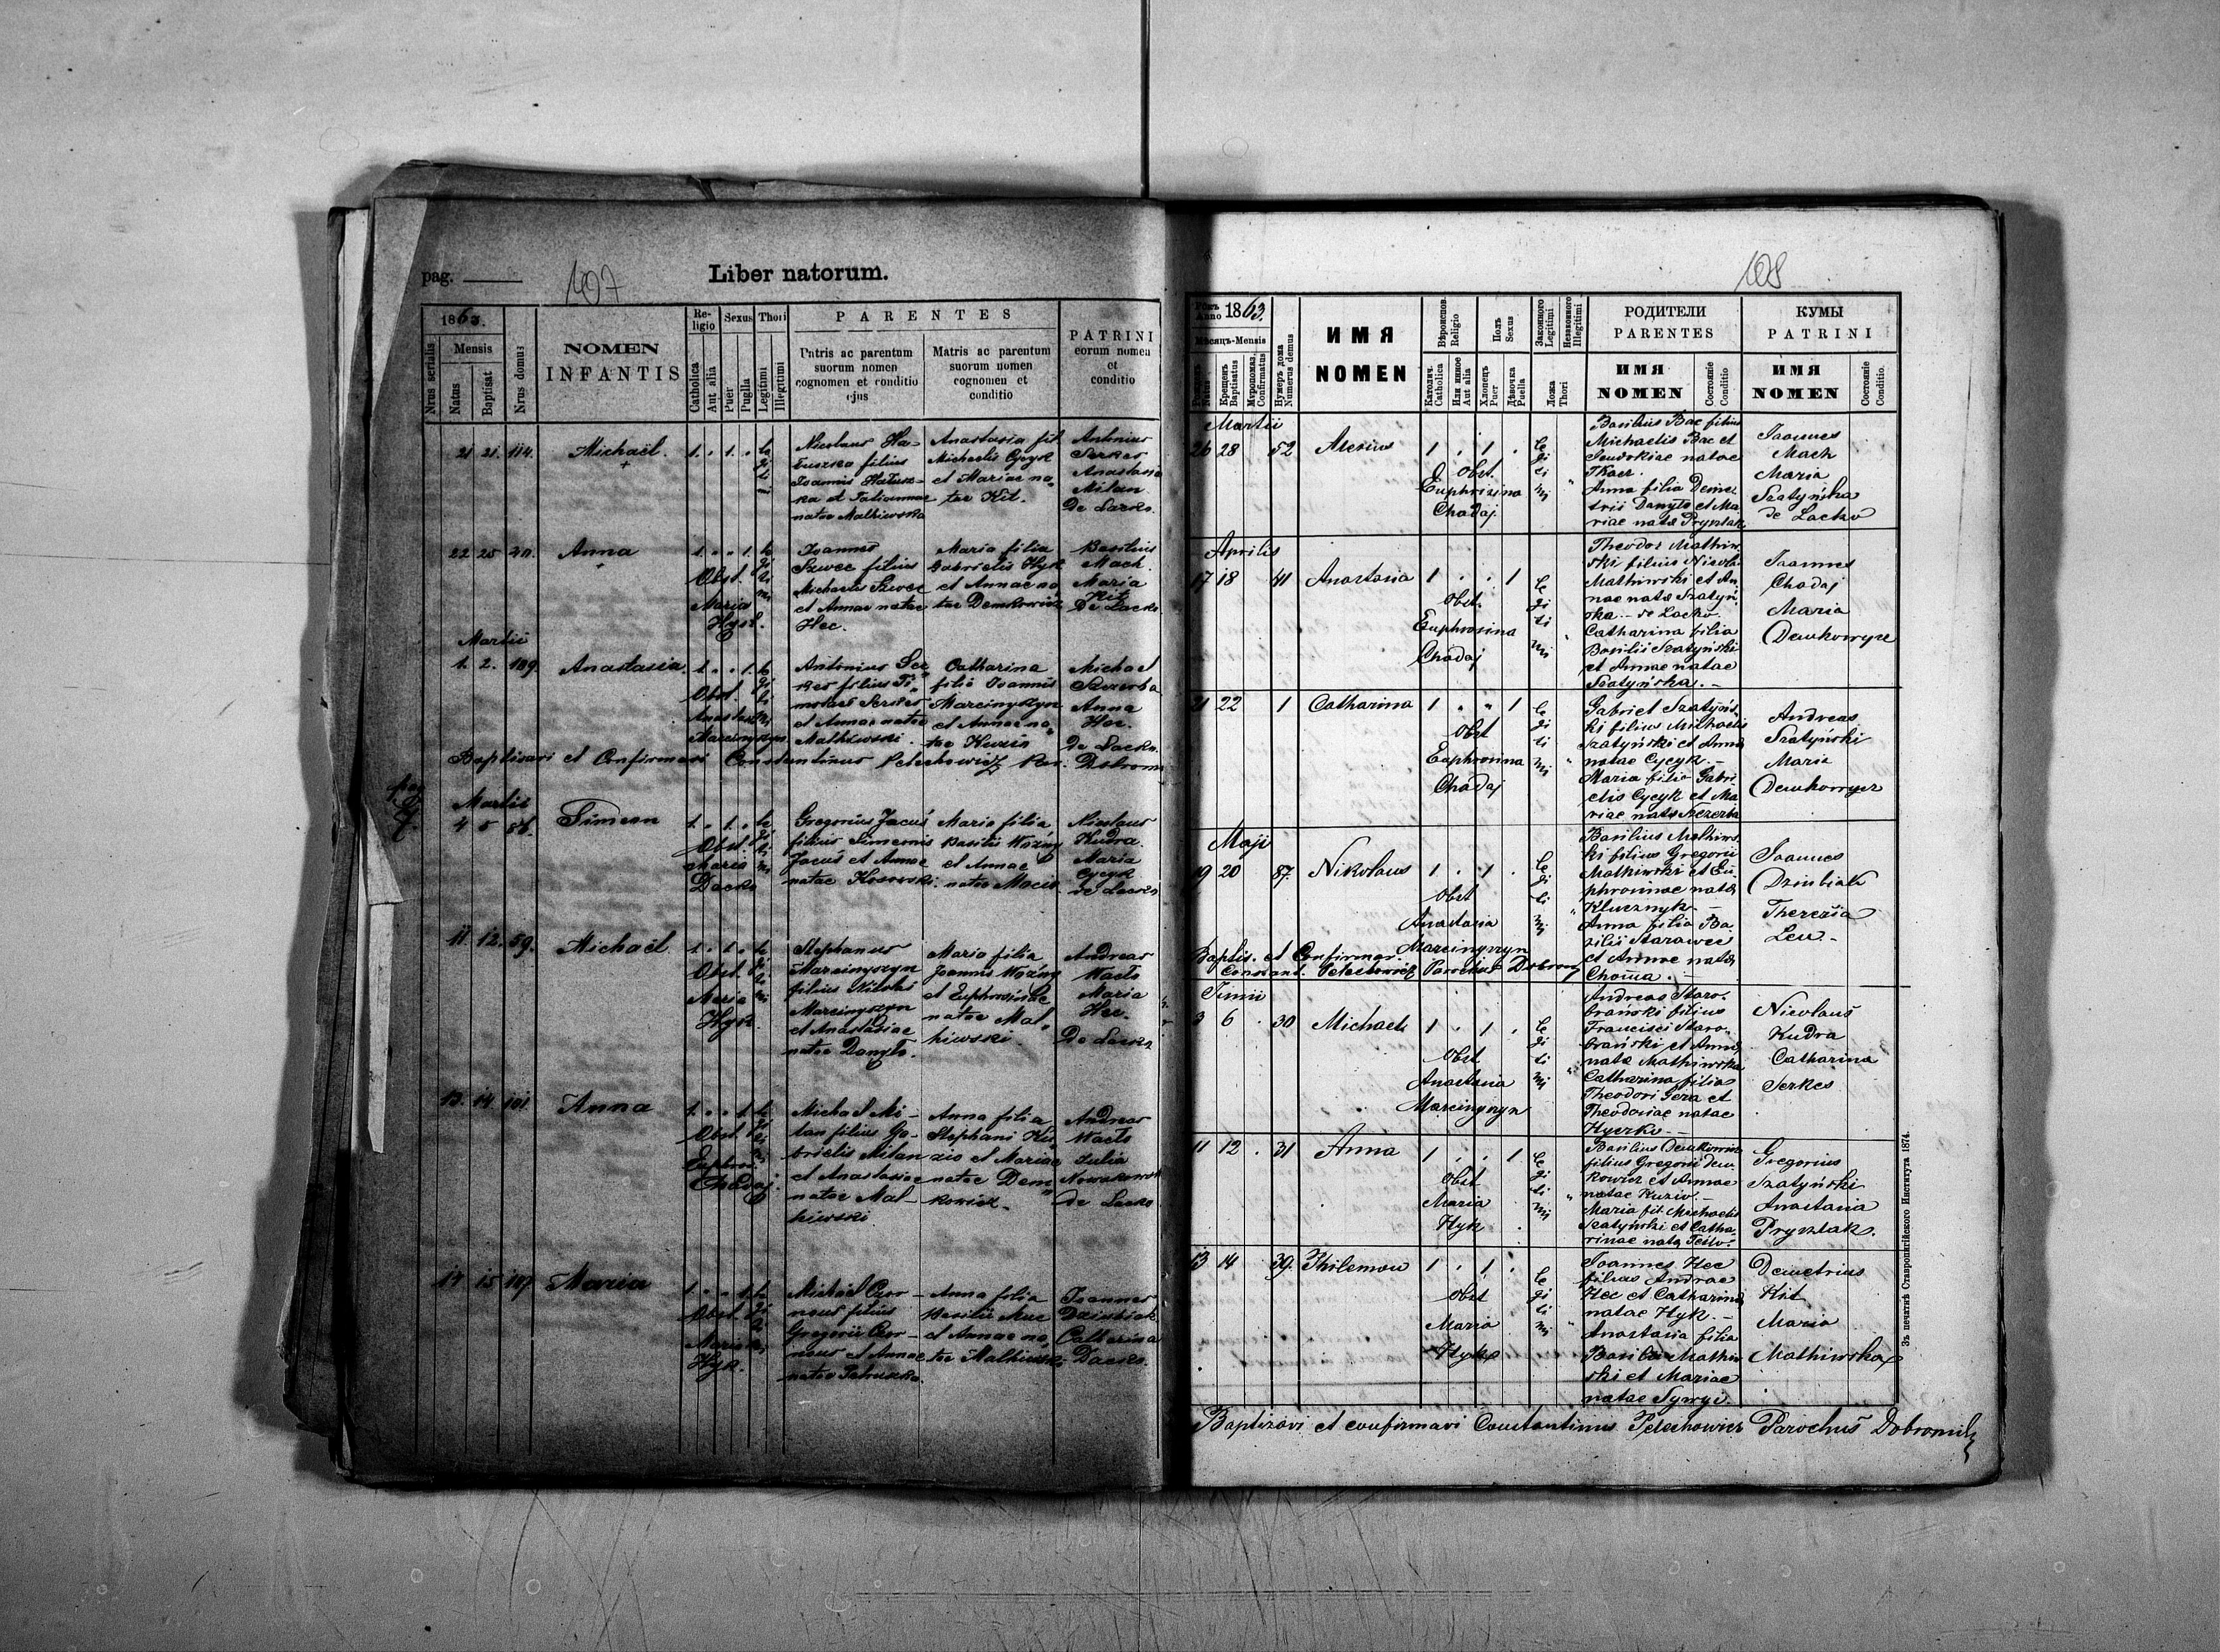 pag.
107
Liber natorum.
1863.
Mensis
Nrus serialis
Natus
Baptisat
Nrus domus
NOMEN
INFANTIS
Re-
ligio
Sexus
Thori
Catholica
Aut alia
Puer
Puella
Legitimi
Illegitimi
PARENTES
Patris ac parentum
suorum nomen
cognomen et conditio
ejus
Matris ac parentum
suorum nomen
cognomen et
conditio
PATRINI
eorum nomen
et
conditio
21 21. 114. Michaël.
1. " 1. "
Nicolaus Ha-
filius
Joannis
natae Malhiwska
Anastasia fil.
Michaelis Cycyk
et Mariae na-
tae Kit.
Antonius
Serkes
Anastasia
Milan
De Lacko.
22 25 Anna
1. " " 1.
Obst.
Maria
Hyk.
Joannes
Szwec filius
Michaelis Szwec
et Annae natae
Hec.
Maria filia
Gabrielis Hyk
et Annae na-
tae Demkowicz
Basilius
Mach.
Maria
Kit
De Lacko
Martii
1. 2. 109. Anastasia.
1. " " 1.
Obst.
Marcinyszyn
Antonius Ser-
kes filius Ti-
Serkes
et Annae natae
Malhiwski.
Catharina
filia Joannis
Marcinyszyn
et Annae na-
tae Kuziv
Michael
Szczerba
Anna
Hec.
de Lacko.
Baptisavi et Confirmavi Constantinus Petechowicz Par. Dobrom
Martii
4 5 56. Simeon
1. " 1. "
Obst.
Maria
Dacko
Gregorius Jacuś
filius Simeonis
Jacuś et Annae
natae Kosowski.
Maria filia
Basilii Woźny
et Annae
natae Maciv
Nicolaus
Kudra.
Maria
Cycyk
de Lacko
11 12. 59. Michaël
1. " 1. "
Obst.
Maria
Hyk.
Stephanus
Marcinyszyn
filius Nicolai
Marcinyszyn
et Anastasiae
natae Danyło.
Maria filia
Joannis Woźny
et Euphrosinae
natae Mal-
hiwski.
Andreas
Wacto
Maria
Hec.
De Lacko
13. 14 101 Anna
1. " " 1.
Obst.
Euphro.
Chadaj.
Michael Mi-
lan filius Ga-
brielis Milan
et Anastasiae
natae Mal-
hiwski.
Anna filia
Stephani
et Mariae
natae Dem-
kowicz.
Andreas
Wacto
Julia
de Lacko
14 15 107 Maria
1. " " 1.
Obst.
Maria
Hyk.
Michael Czor-
nous filius
Gregorii Czor-
nous et Annae
Anna filia
Basilii
et Annae na-
tae Malhiwski
Joannes
Dziubiak
Catharina
Dacko.
108
Рокъ
Anno 1863.
Мѣсяцъ-Mensis
Natus
Крещенъ
Baptisatus
Мѵропомаз.
Confirmatus
Нумеръ дома
Numerus domus
ИМЯ
NOMEN
Вѣроиспов.
Religio
Полъ
Sexus
Законного
Legitimi
Незаконного
Illegitimi
Католич.
Catholica
Или инное
Aut alia
Хлопецъ
Puer
Дѣвочка
Puella
Ложа
Thori
РОДИТЕЛИ
PARENTES
ИМЯ
NOMEN
Состоянiе
Conditio
КУМЫ
PATRINI
ИМЯ
NOMEN
Состоянiе
Conditio.
Martii
26 28 52 Alexius 1 . 1 .
Obst.
Euphrisina
Chadaj.
legitimi
Basilius Bac filius
Michaelis Bac et
Eudokiae natae
Tkacz.
Anna filia Deme-
trii Danyło et Ma-
riae natae Prysztak
Joannes
Mach
Maria
Szatyńska
de Lacko
Aprilis
17 18 41 Anastasia 1 . . 1
Obst.
Euphrosina
Chadaj
legitimi
Theodor Mathiw-
ski filius Nicolai
Mathiwski et An-
nae natae Szatyń-
ska - de Lacko.
Catharina filia
Basilii Szatyński
et Annae natae
Szatyńska. -
Joannes
Chadaj
Maria
Demkowycz
21 22 1 Catharina 1 " " 1
Obst
Euphrosina
Chadaj
legitimi
Gabriel Szatyńs-
ki filius Michaelis
Szatyński et Annae
natae Cycyk. -
Maria filia Gabri-
elis Cycyk et Ma-
riae natae Szczerba
Andreas
Szatyński
Maria
Demkowycz
Maji
19 20 87. Nikolaus 1 . 1 .
Obst
Anastasia
Marcinyszyn
legitimi
Basilius Mathiws-
ki filius Gregorii
Mathiwski et Eu-
phrosinae natae
Klucznyk -
Anna filia Ba-
silii Starawec
et Annae natae
Choma. -
Joannes
Dziubiak
Theresia
Leu -
Baptis. et Confirmav.
Constant. Petechowicz Parochus Dobrom
Junii
3 6 . 30 Michael 1 . 1 .
Obst
Anastasia
Marcinyszyn
legitimi
Andreas Staro-
brański filius
Francisci Staro-
brański et Annae
natae Mathiwska
Catharina filia
Theodori Gera et
Theodosiae natae
Hyczko -
Nicolaus
Kudra
Catharina
Serkes
11 12 . 31 Anna 1 . . 1
Obst
Maria
Hyk
legitimi
Basilius Demkowicz
filius Gregorii Dem-
kowicz et Annae
natae Kuziv. -
Maria fil. Michaelis
Szatyński et Catha-
rinae natae
Gregorius
Szatyński
Anastasia
Prysztak.
13 14 39. Philemon 1 . 1 .
Obst
Maria
Hyk
legitimi
Joannes Hec
filius Andreae
Hec et Catharinae
natae Hyk. -
Anastasia filia
Basilii Mathiw-
ski et Mariae
natae Sywyj.
Demetrius
Kit
Maria
Mathiwska
Baptizavi et confirmavi Constantinus Petechowicz Parochus Dobromil
Зъ печатнѣ Ставропигійского Института 1874.